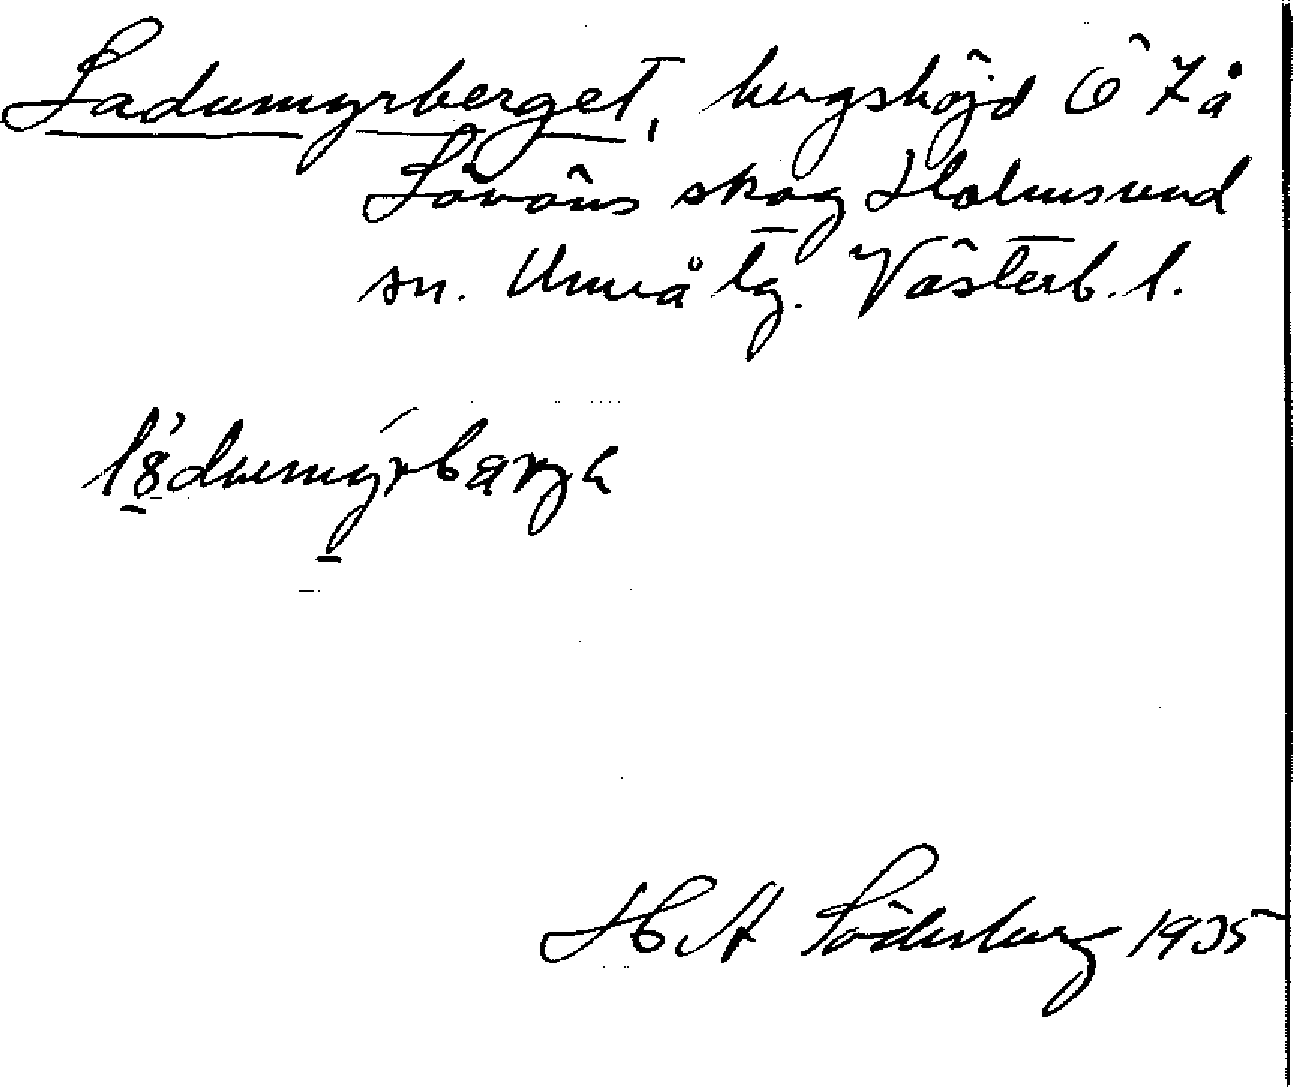 Ladumyrberget, bergshöjd Ö 7 å
Lövöns skog Holmsund
sn. Umeå tg. Västerb. l.
H. A Söderberg 1935